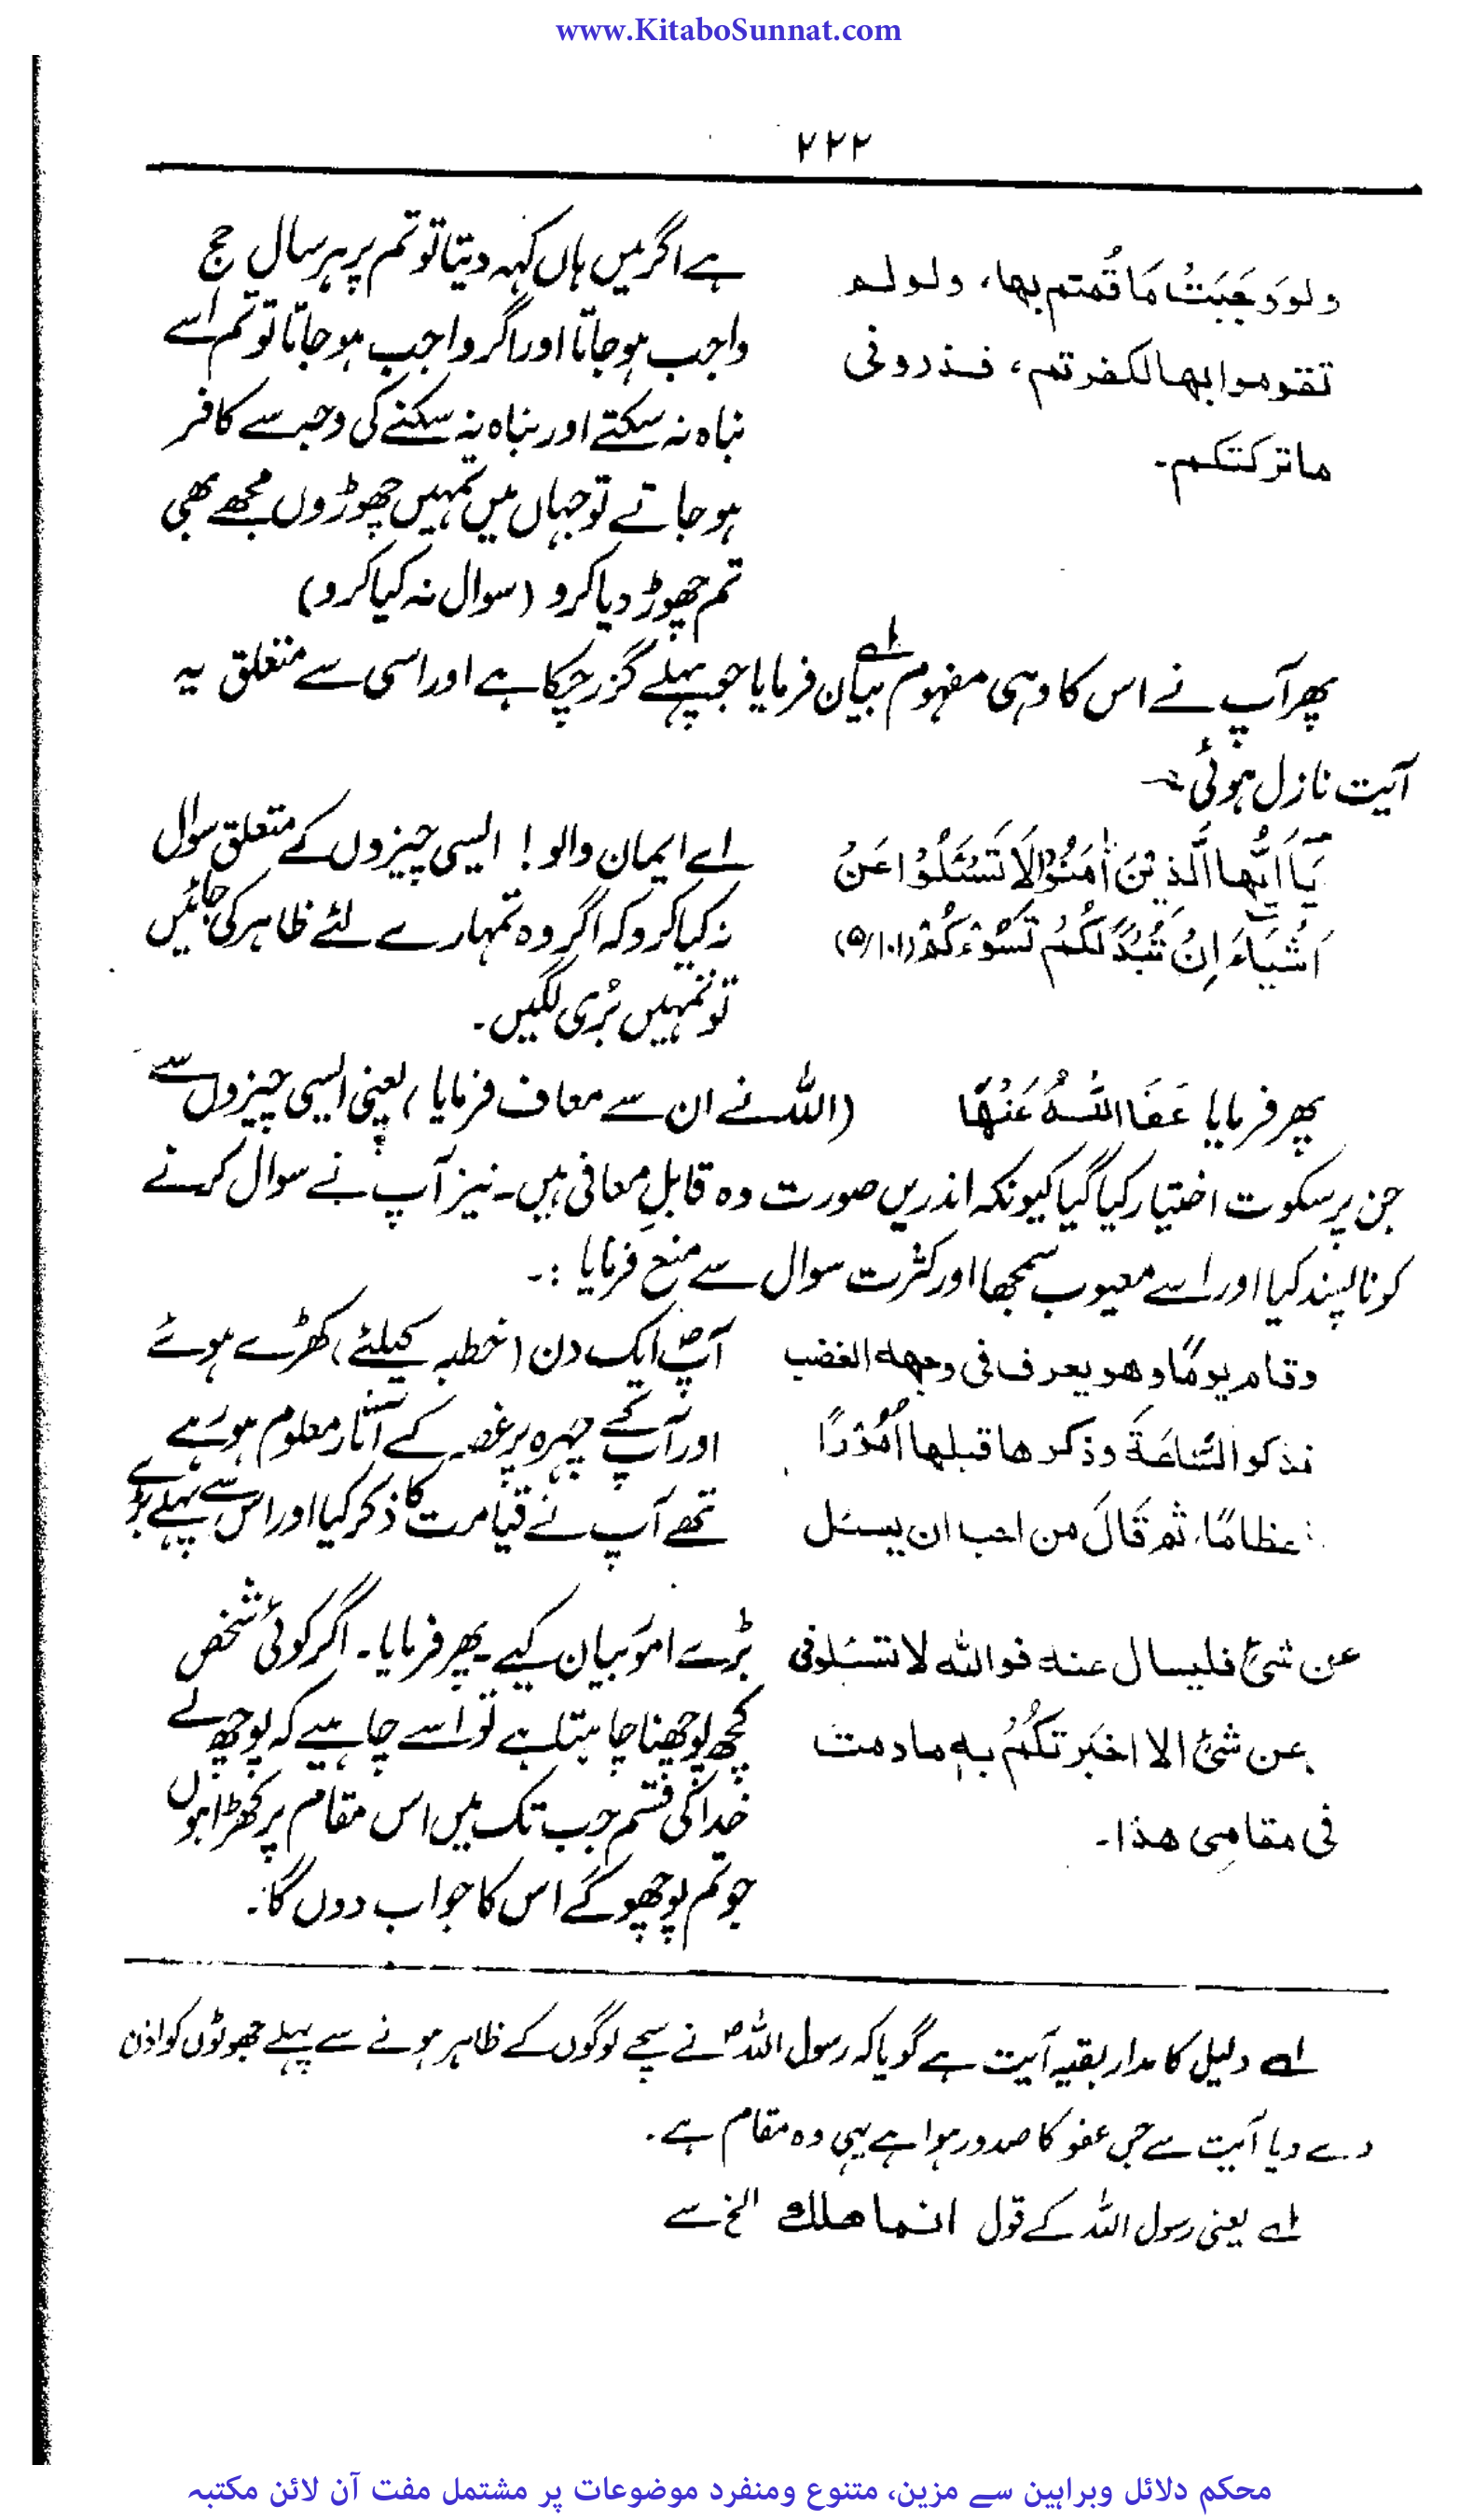 www.KitaboSunnat.com
۲۲۲
ولو وَجَبَتْ مَا قُمتم بها، ولو لم
تقوموا بها لكفرتم، فذرونی
ماترکتکم۔
ہے اگر میں ہاں کہہ دیتا تو تم پر ہر سال حج
واجب ہو جاتا اور اگر واجب ہو جاتا تو تم اسے
نباہ نہ سکتے اور نباہ نہ سکنے کی وجہ سے کافر
ہو جاتے تو جہاں میں تمہیں چھوڑوں مجھے بھی
تم چھوڑ دیا کرو (سوال نہ کیا کرو)
پھر آپ نے اس کا وہی مفہوم بیان فرمایا جو پہلے گزر چکا ہے اور اسی سے متعلق یہ
آیت نازل ہوئی :۔
يٰٓاَيُّهَا الَّذِيْنَ اٰمَنُوْا لَا تَسْئَلُوْا عَنْ
اَشْيَآءَ اِنْ تُبْدَ لَكُمْ تَسُؤْكُمْ (۵/۱۰۱)
اے ایمان والو! ایسی چیزوں کے متعلق سوال
نہ کیا کرو کہ اگر وہ تمہارے لئے ظاہر کی جائیں
تو تمہیں بُری لگیں۔
پھر فرمایا عَفَا اللّٰهُ عَنْهَا (اللہ نے ان سے معاف فرمایا) یعنی ایسی چیزوں سے
جن پر سکوت اختیار کیا گیا کیونکہ اندریں صورت وہ قابلِ معافی ہیں۔ نیز آپ نے سوال کرنے
کو ناپسند کیا اور اسے معیوب سمجھا اور کثرت سوال سے منع فرمایا :۔
وقام يومًا وهو يعرف فی وجهه الغضب
فذكر السَّاعَةَ وذكرها قبلها اُمُوْرًا
عظامًا، ثم قَالَ من احب ان يسئل
عن شیٔ فليسال عنه فوالله لا تسئلونی
عن شیٔ الا اخبَرتكُمْ بهٖ مادمت
فی مقامِی هذا۔
آپؐ ایک دن (خطبہ کیلئے) کھڑے ہوئے
اور آپ کے چہرہ پر غصہ کے آثار معلوم ہو رہے
تھے آپ نے قیامت کا ذکر کیا اور اس سے پہلے بڑے
بڑے امور بیان کیے۔ پھر فرمایا۔ اگر کوئی شخص
کچھ پوچھنا چاہتا ہے تو اسے چاہیے کہ پوچھ لے
خدا کی قسم جب تک میں اس مقام پر کھڑا ہوں
جو تم پوچھو گے اس کا جواب دوں گا۔
لے دلیل کا مدار بقیہ آیت ہے گویا کہ رسول اللہؐ نے سچے لوگوں کے ظاہر ہونے سے پہلے جھوٹوں کو اذن
دے دیا آیت سے جس عفو کا صدور ہوا ہے یہی وہ مقام ہے۔
لے یعنی رسول اللہ کے قول انما هلك الخ سے
محکم دلائل وبراہین سے مزین، متنوع ومنفرد موضوعات پر مشتمل مفت آن لائن مکتبہ